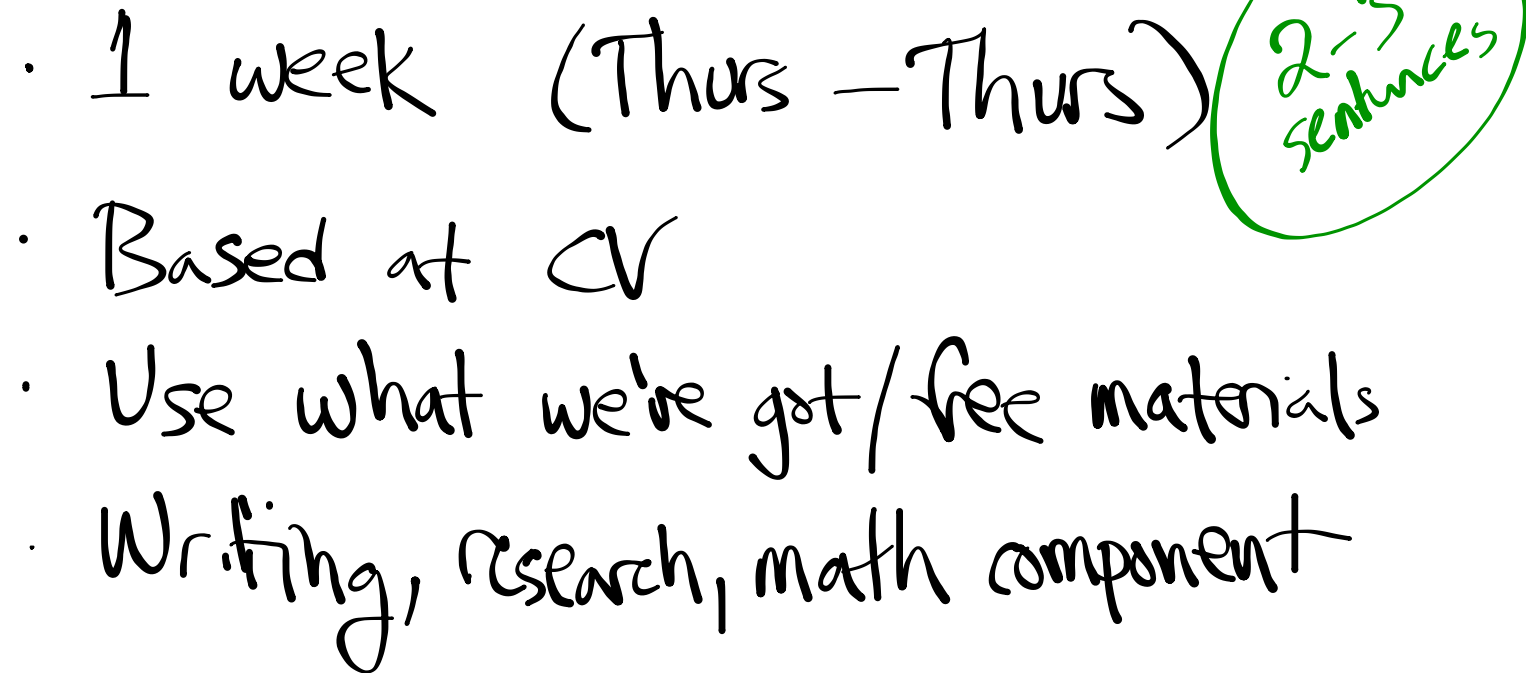 · 1 week (Thurs – Thurs)
2-3
sentences
· Based at CV
· Use what we've got/free materials
· Writing, research, math component